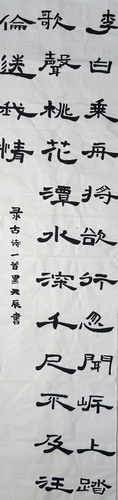 李白乘舟將欲行忽聞岸上踏
歌聲桃花潭水深千尺不及汪
倫送我情
录古诗一首辰書